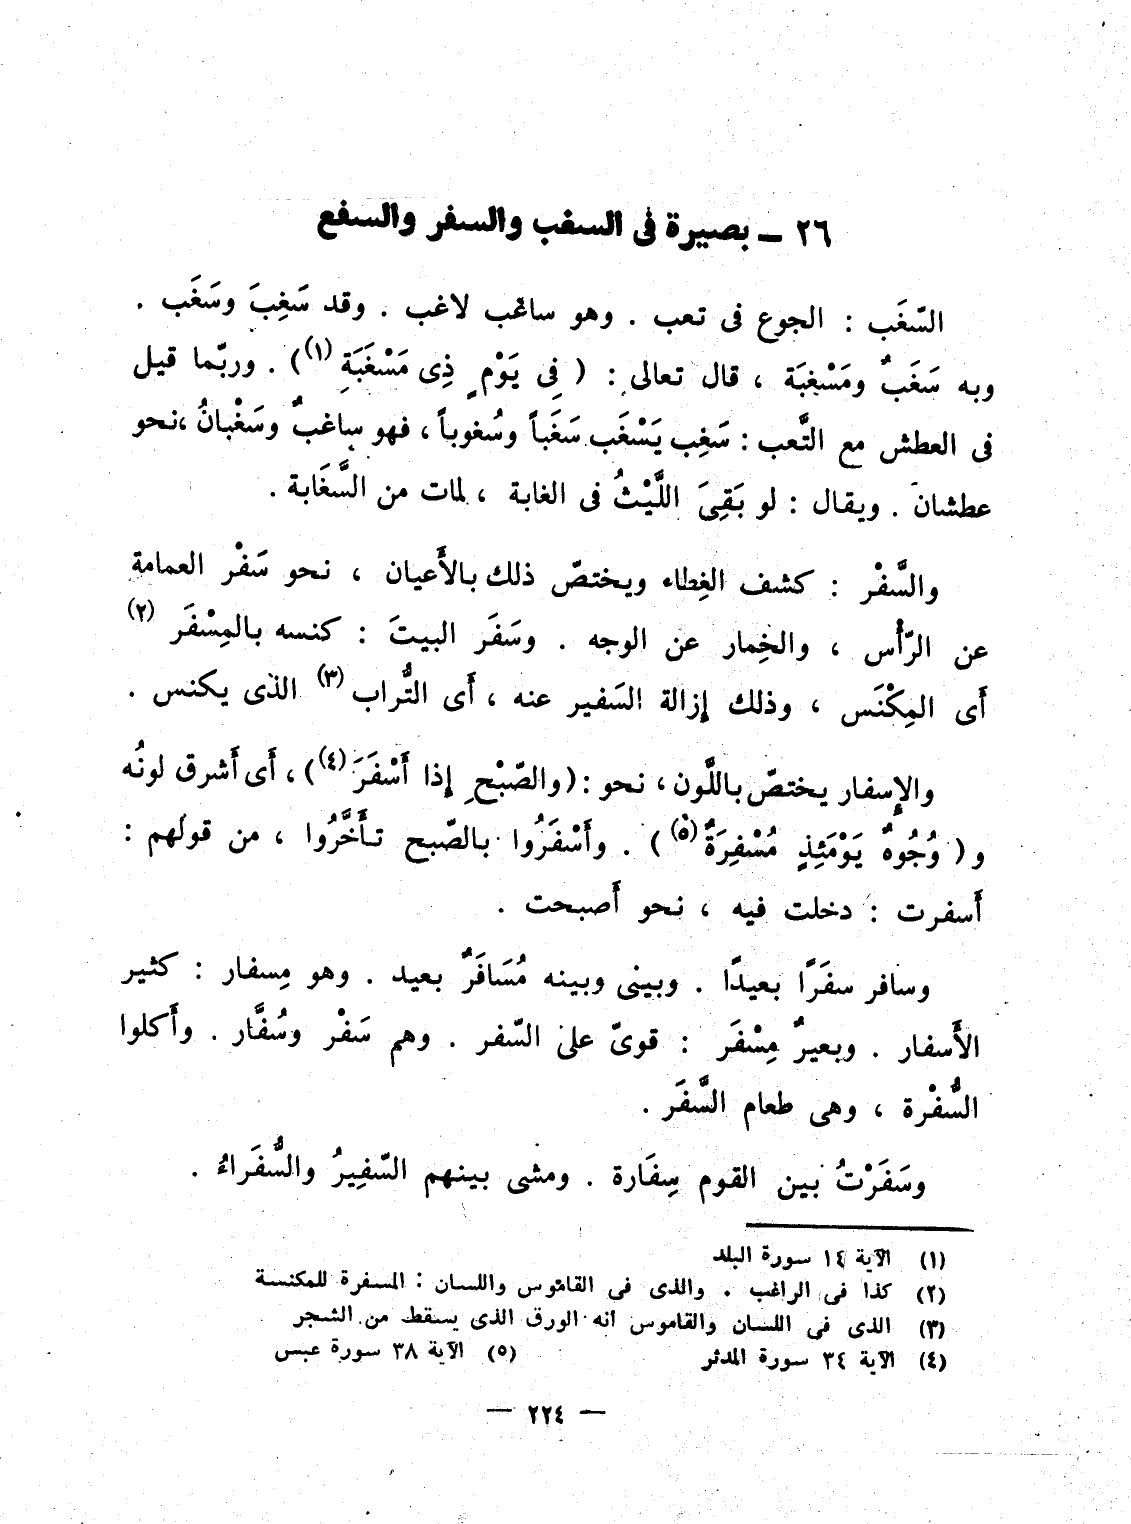 ٢٦ ــ بصيرة فى السغب والسفر والسفع
السَّغَب : الجوع فى تعب . وهو ساغب لاغب . وقد سَغِبَ وسَغَب .
وبه سَغَبٌ ومَسْغِبَة ، قال تعالى : ( فِى يَوْمٍ ذِى مَسْغَبَةِ (١) ) . وربّما قيل
فى العطش مع التَّعب : سَغِب يَسْغَب سَغَباً وسُغوباً ، فهو ساغبٌ وسَغْبانُ ، نحو
عطشان . ويقال : لو بَقِىَ اللَّيْثُ فى الغابة ، لمات من السَّغَابة .
والسَّفْر : كشف الغِطاء ويختصّ ذلك بالأَعيان ، نحو سَفْر العمامة
عن الرّأْس ، والخِمار عن الوجه . وسَفَر البيتَ : كنسه بالمِسْفَر (٢)
أَى المِكْنَس ، وذلك إزالة السَفير عنه ، أَى التُّراب (٣) الذى يكنس .
والإسفار يختصّ باللَّون ، نحو : (والصّبْحِ إِذا أَسْفَرَ (٤) ) ، أَى أَشرق لونُه
و ( وُجُوهٌ يَوْمَئِذٍ مُسْفِرَةٌ (٥) ) . وأَسْفَرُوا بالصّبح تأَخَّرُوا ، من قولهم :
أَسفرت : دخلت فيه ، نحو أَصبحت .
وسافر سفَرًا بعيدًا . وبينى وبينه مُسَافَرٌ بعيد . وهو مِسفار : كثير
الأَسفار . وبعيرٌ مِسْفَر : قوىّ على السّفر . وهم سَفْر وسُفَّار . وأَكلوا
السُّفْرة ، وهى طعام السَّفَر .
وسَفَرْتُ بين القوم سِفَارة . ومشى بينهم السّفِيرُ والسُّفَراءُ .
(١) الآية ١٤ سورة البلد
(٢) كذا فى الراغب . والذى فى القاموس واللسان : المسفرة للمكنسة
(٣) الذى فى اللسان والقاموس أنه الورق الذى يسقط من الشجر
(٤) الآية ٣٤ سورة المدثر (٥) الآية ٣٨ سورة عبس
— ٢٢٤ —